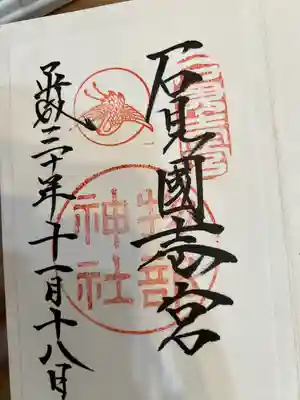 石見國壱宮
物部
神社
平成三十年十一月十八日